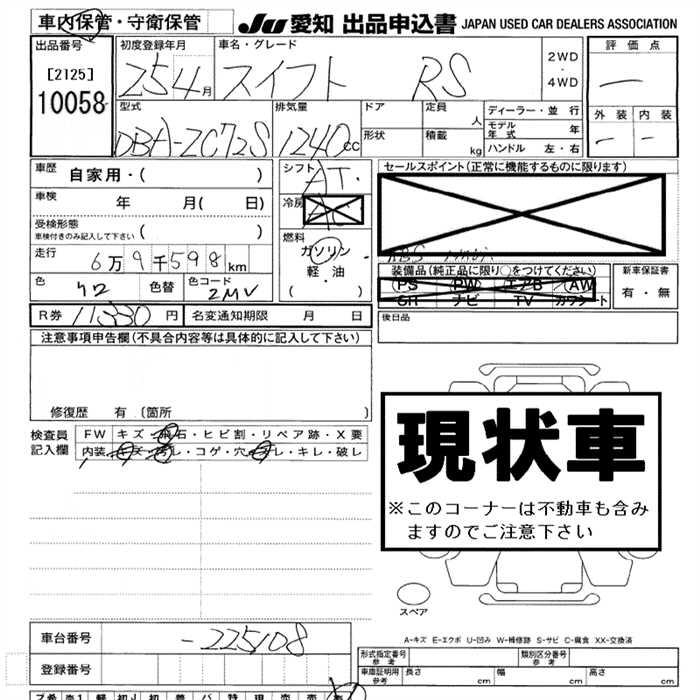 車内保管・守衛保管
JU 愛知 出品申込書 JAPAN USED CAR DEALERS ASSOCIATION
出品番号
[2125]
10058
初度登録年月
25 4 月
車名・グレード
スイフト RS
2WD
・
4WD
評価点
外装 内装
型式
DBA-ZC72S
排気量
1240 cc
ドア
形状
定員
人
積載
kg
ディーラー・並行
モデル年式 年
ハンドル 左・右
車歴
自家用・( )
車検
年 月( 日)
受検形態
車検付きのみ記入して下さい ( )
走行
6万9千598km
色
クロ
色替
色コード
ZMV
シフト
AT
冷房
燃料
ガソリン
軽・油
( ・ )
セールスポイント(正常に機能するものに限ります)
ABS
装備品(純正品に限り○をつけてください)
PS PW エアB AW
SR ナビ TV カワシート
新車保証書
有・無
R券 11330 円
名変通知期限 月 日
後日品
注意事項申告欄(不具合内容等は具体的に記入して下さい)
修復歴 有 (箇所 )
検査員
記入欄
FW キズ・飛石・ヒビ割・リペア跡・X要
内装 キズ・汚レ・コゲ・穴・スレ・キレ・破レ
現状車
※このコーナーは不動車も含み
ますのでご注意下さい
スペア
A-キズ E-エクボ U-凹み W-補修跡 S-サビ C-腐食 XX-交換済
車台番号
-225108
登録番号
形式指定番号
参考
類別区分番号
参考
車庫証明用
参考
長さ cm
幅 cm
高さ cm